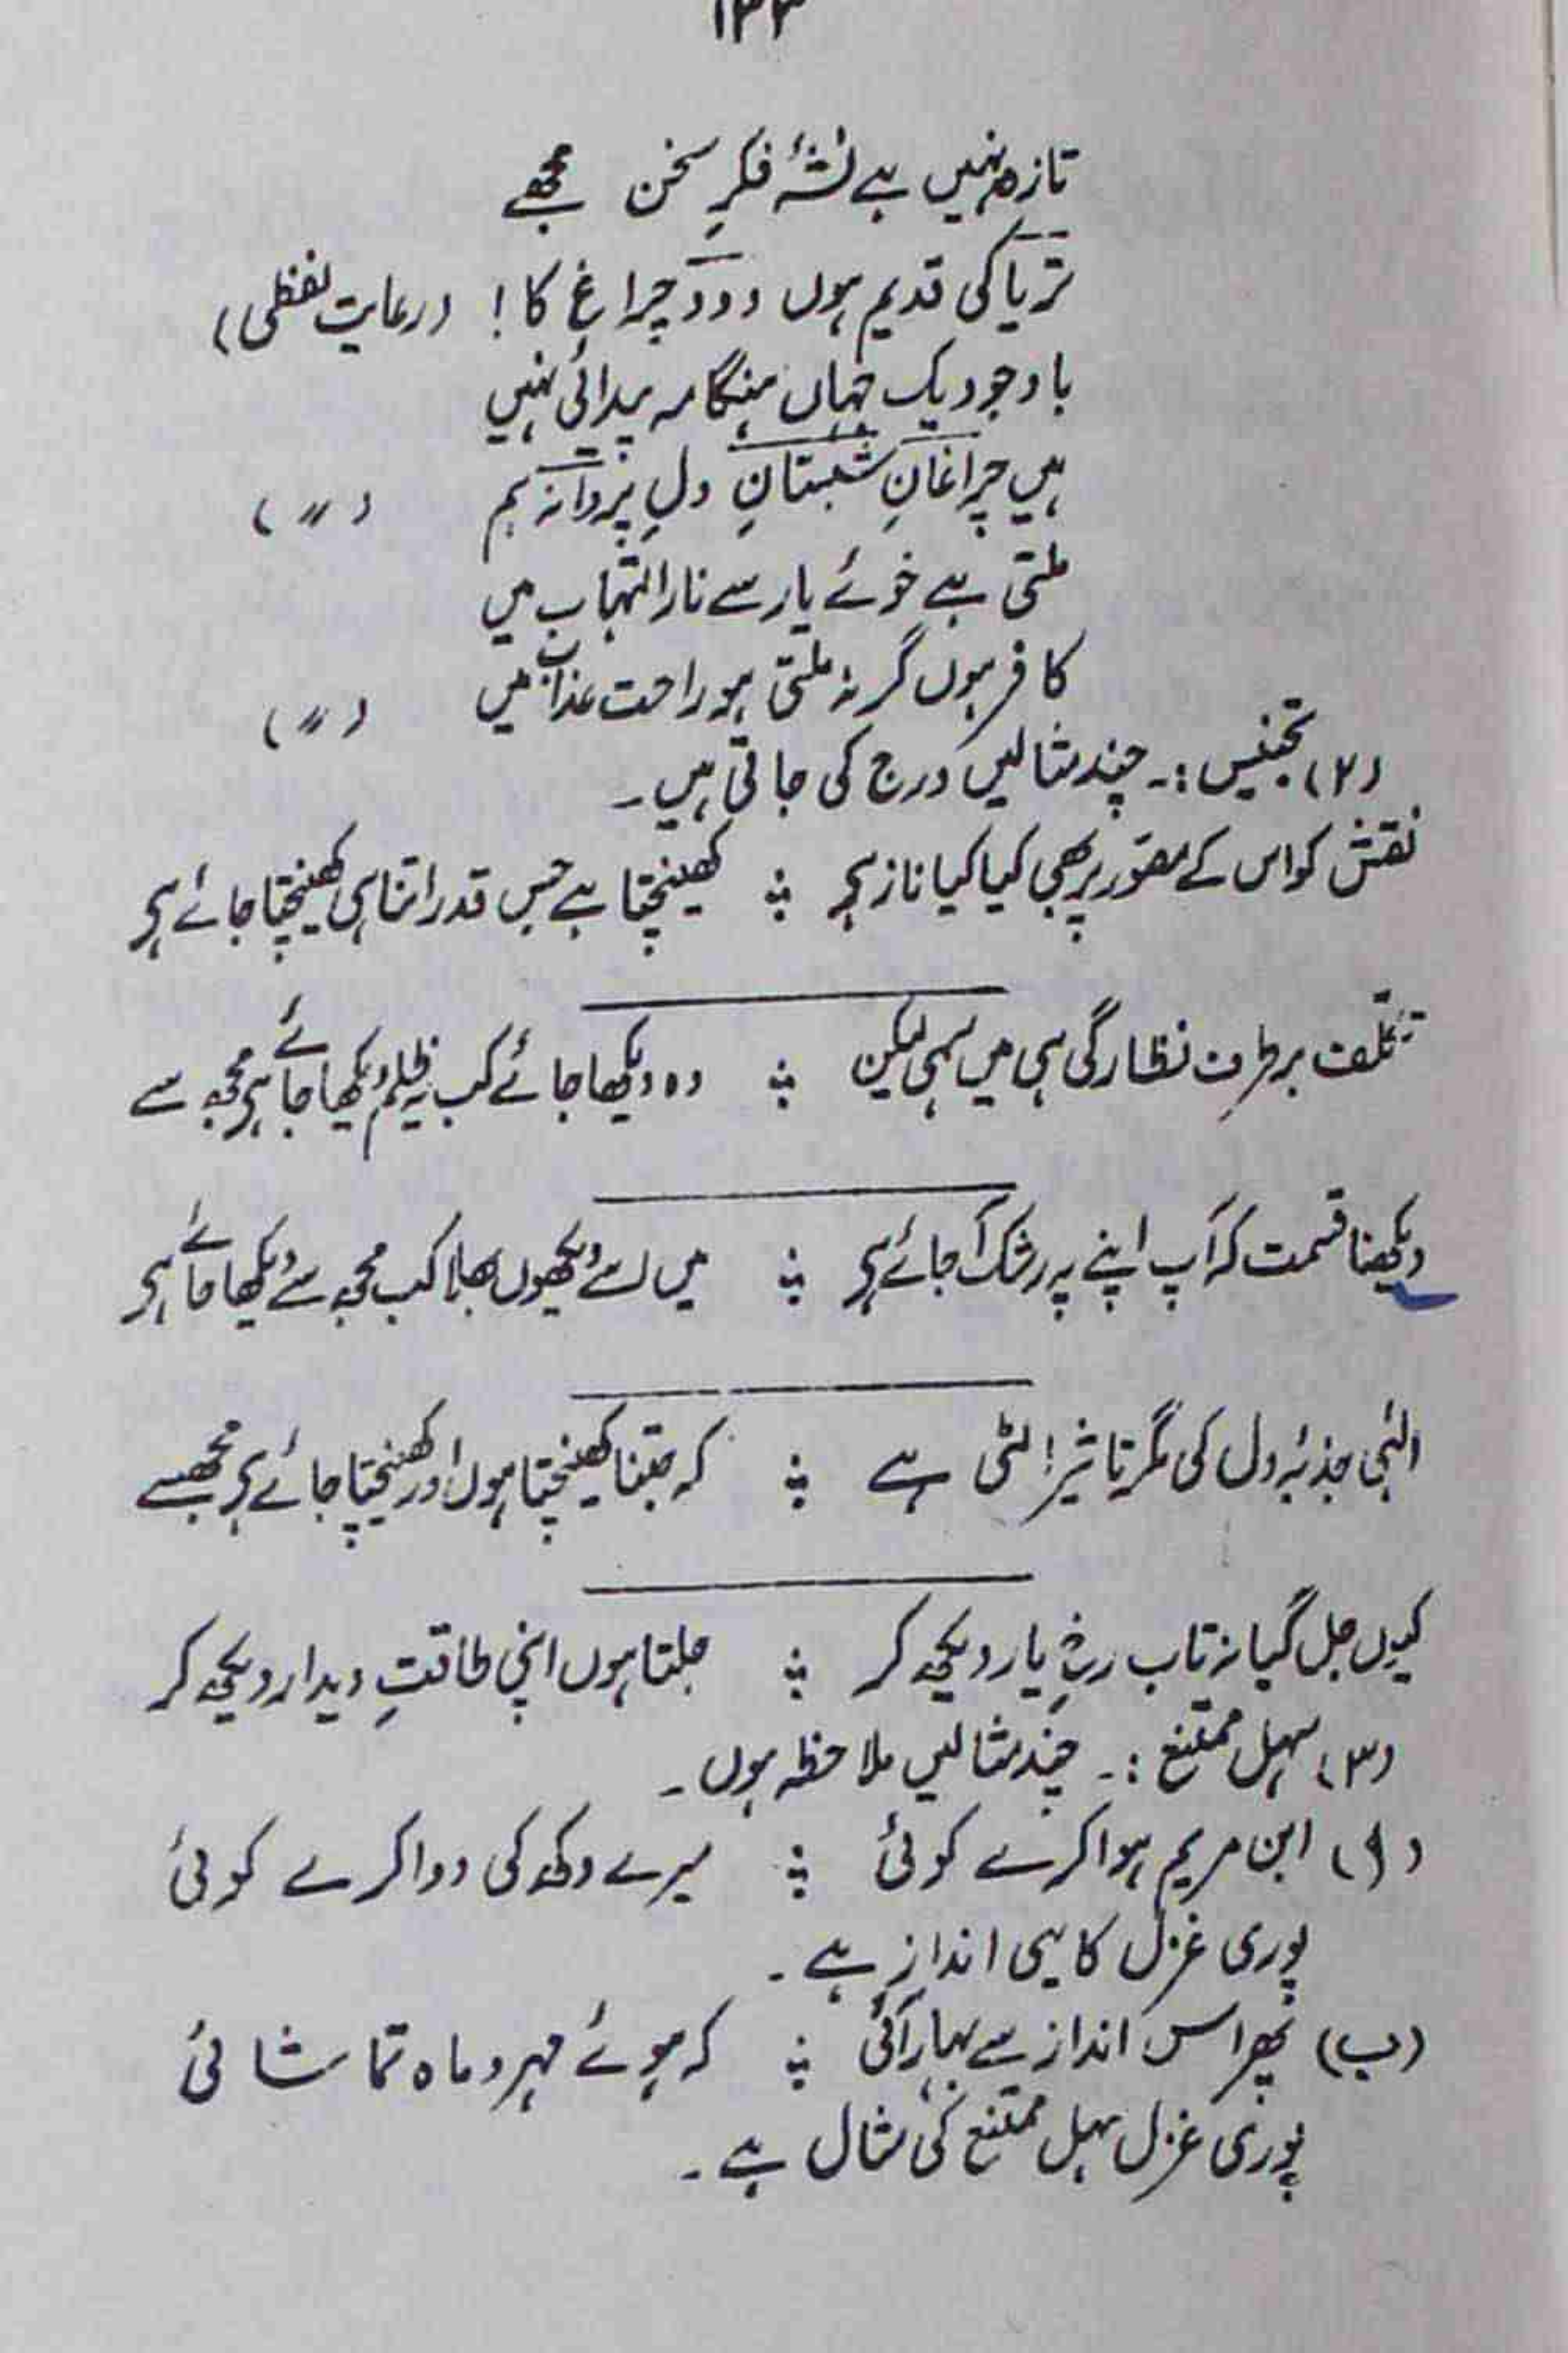 تازہ نہیں ہے نشۂ فکرِ سخن مجھے
تریاکی قدیم ہوں دودِ چراغ کا! (رعایت لفظی)
باوجودیک جہاں ہنگامہ پیدائی نہیں
ہیں چراغانِ شبستانِ دلِ پروانہ ہم (〃)
ملتی ہے خوئے یار سے نار التہاب میں
کافر ہوں گر نہ ملتی ہو راحت عذاب میں (〃)
(۲) تجنیس :۔ چند مثالیں درج کی جاتی ہیں۔
نقش کو اس کے مصور پر بھی کیا کیا ناز ہے ؞ کھینچتا ہے جس قدر اتنا ہی کھینچتا جائے ہے
تکلف برطرف نظارگی ہی میں سہی لیکن ؞ وہ دیکھا جائے کب یہ ظلم دیکھا جائے ہے مجھ سے
دیکھنا قسمت کہ آپ اپنے پہ رشک آ جائے ہے ؞ میں اسے دیکھوں بھلا کب مجھ سے دیکھا جائے ہے
الٰہی جذبۂ دل کی مگر تاثیر الٹی ہے ؞ کہ جتنا کھینچتا ہوں اور کھینچتا جائے ہے مجھ سے
کیوں جل گیا نہ تاب رخِ یار دیکھ کر ؞ جلتا ہوں اپنی طاقتِ دیدار دیکھ کر
(۳) سہل ممتنع :۔ چند مثالیں ملاحظہ ہوں۔
(ا) ابن مریم ہوا کرے کوئی ؞ میرے دکھ کی دوا کرے کوئی
پوری غزل کا یہی انداز ہے۔
(ب) پھر اس انداز سے بہار آئی ؞ کہ ہوئے مہر و ماہ تماشائی
پوری غزل سہل ممتنع کی مثال ہے۔